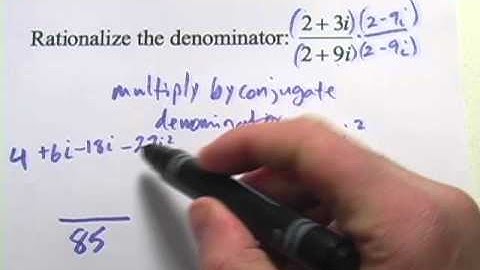 Rationalize the denominator: (2 + 3i) (2 - 9i) / (2 + 9i) (2 - 9i)
multiply by conjugate
denominator i²
4 + 6i - 18i - 27i²
85